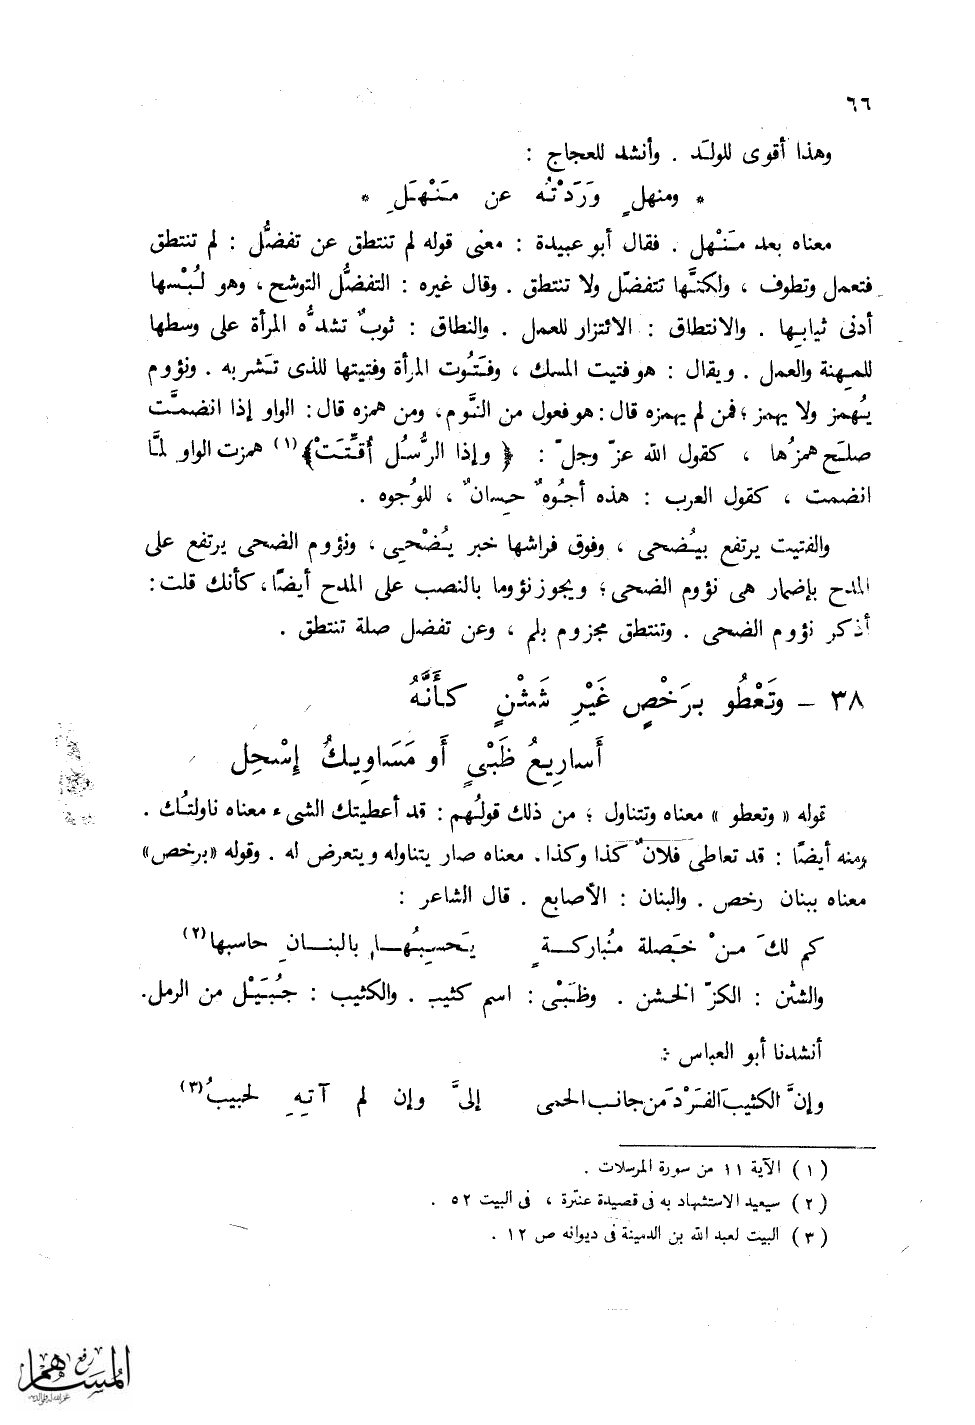 ٦٦
وهذا أقوى للولد . وأنشد للعجاج :
* ومنهلٍ وَرَدْتُه عن مَنْهَلِ *
معناه بعد مَنْهل . فقال أبو عبيدة : معنى قوله لم تنتطق عن تفضُّل : لم تنتطق
فتعمل وتطوف ، ولكنَّها تتفضّل ولا تنتطق . وقال غيره : التفضُّل التوشح ، وهو لُبْسها
أدنى ثيابِها . والانتطاق : الائتزار للعمل . والنطاق : ثوبٌ تشدُّه المرأة على وسطها
للمِهنة والعمل . ويقال : هو فتيت المسك ، وفَتُوت المرأة وفتيتها للذى تَشربه . ونؤوم
يُهمز ولا يهمز ؛ فمن لم يهمزه قال : هو فعول من النَّوم ، ومن همزه قال : الواو إذا انضمَّت
صلَح همزُها ، كقول الله عزّ وجلّ : ﴿ وإذا الرُّسُل أُقِّتَتْ ﴾(١) همزت الواو لمَّا
انضمت ، كقول العرب : هذه أجُوهٌ حِسانٌ ، للوُجوه .
والفتيت يرتفع بيُضحى ، وفوق فراشها خبر يُضْحِى ، ونؤوم الضحى يرتفع على
المدح بإضمار هى نؤوم الضحى ؛ ويجوز نؤوما بالنصب على المدح أيضًا ، كأنك قلت :
أذكر نؤوم الضحى . وتنتطق مجزوم بلم ، وعن تفضل صلة تنتطق .
٣٨ – وتَعْطُو بِرَخْصٍ غَيْرِ شَثْنٍ كأَنَّهُ
أَسارِيعُ ظَبْىٍ أَو مَسَاوِيكُ إِسْحِلِ
قوله « وتعطو » معناه وتتناول ؛ من ذلك قولُهم : قد أعطيتك الشىء معناه ناولتُك .
ومنه أيضًا : قد تعاطى فلانٌ كذا وكذا ، معناه صار يتناوله ويتعرض له . وقوله « برخص »
معناه ببنان رخص . والبنان : الأصابع . قال الشاعر :
كم لكَ مِنْ خَصلة مُباركةٍ يَحسِبُها بالبنانِ حاسبها(٢)
والشثن : الكزّ الخشن . وظَبْى : اسم كثيب . والكثيب : جُبَيْل من الرمل .
أنشدنا أبو العباس :
وإنَّ الكثيبَ الفَرْدَ من جانب الحمى إلىَّ وإن لم آتِهِ لحبيبُ(٣)
( ١ ) الآية ١١ من سورة المرسلات .
( ٢ ) سيعيد الاستشهاد به فى قصيدة عنترة ، فى البيت ٥٢ .
( ٣ ) البيت لعبد الله بن الدمينة فى ديوانه ص ١٢ .